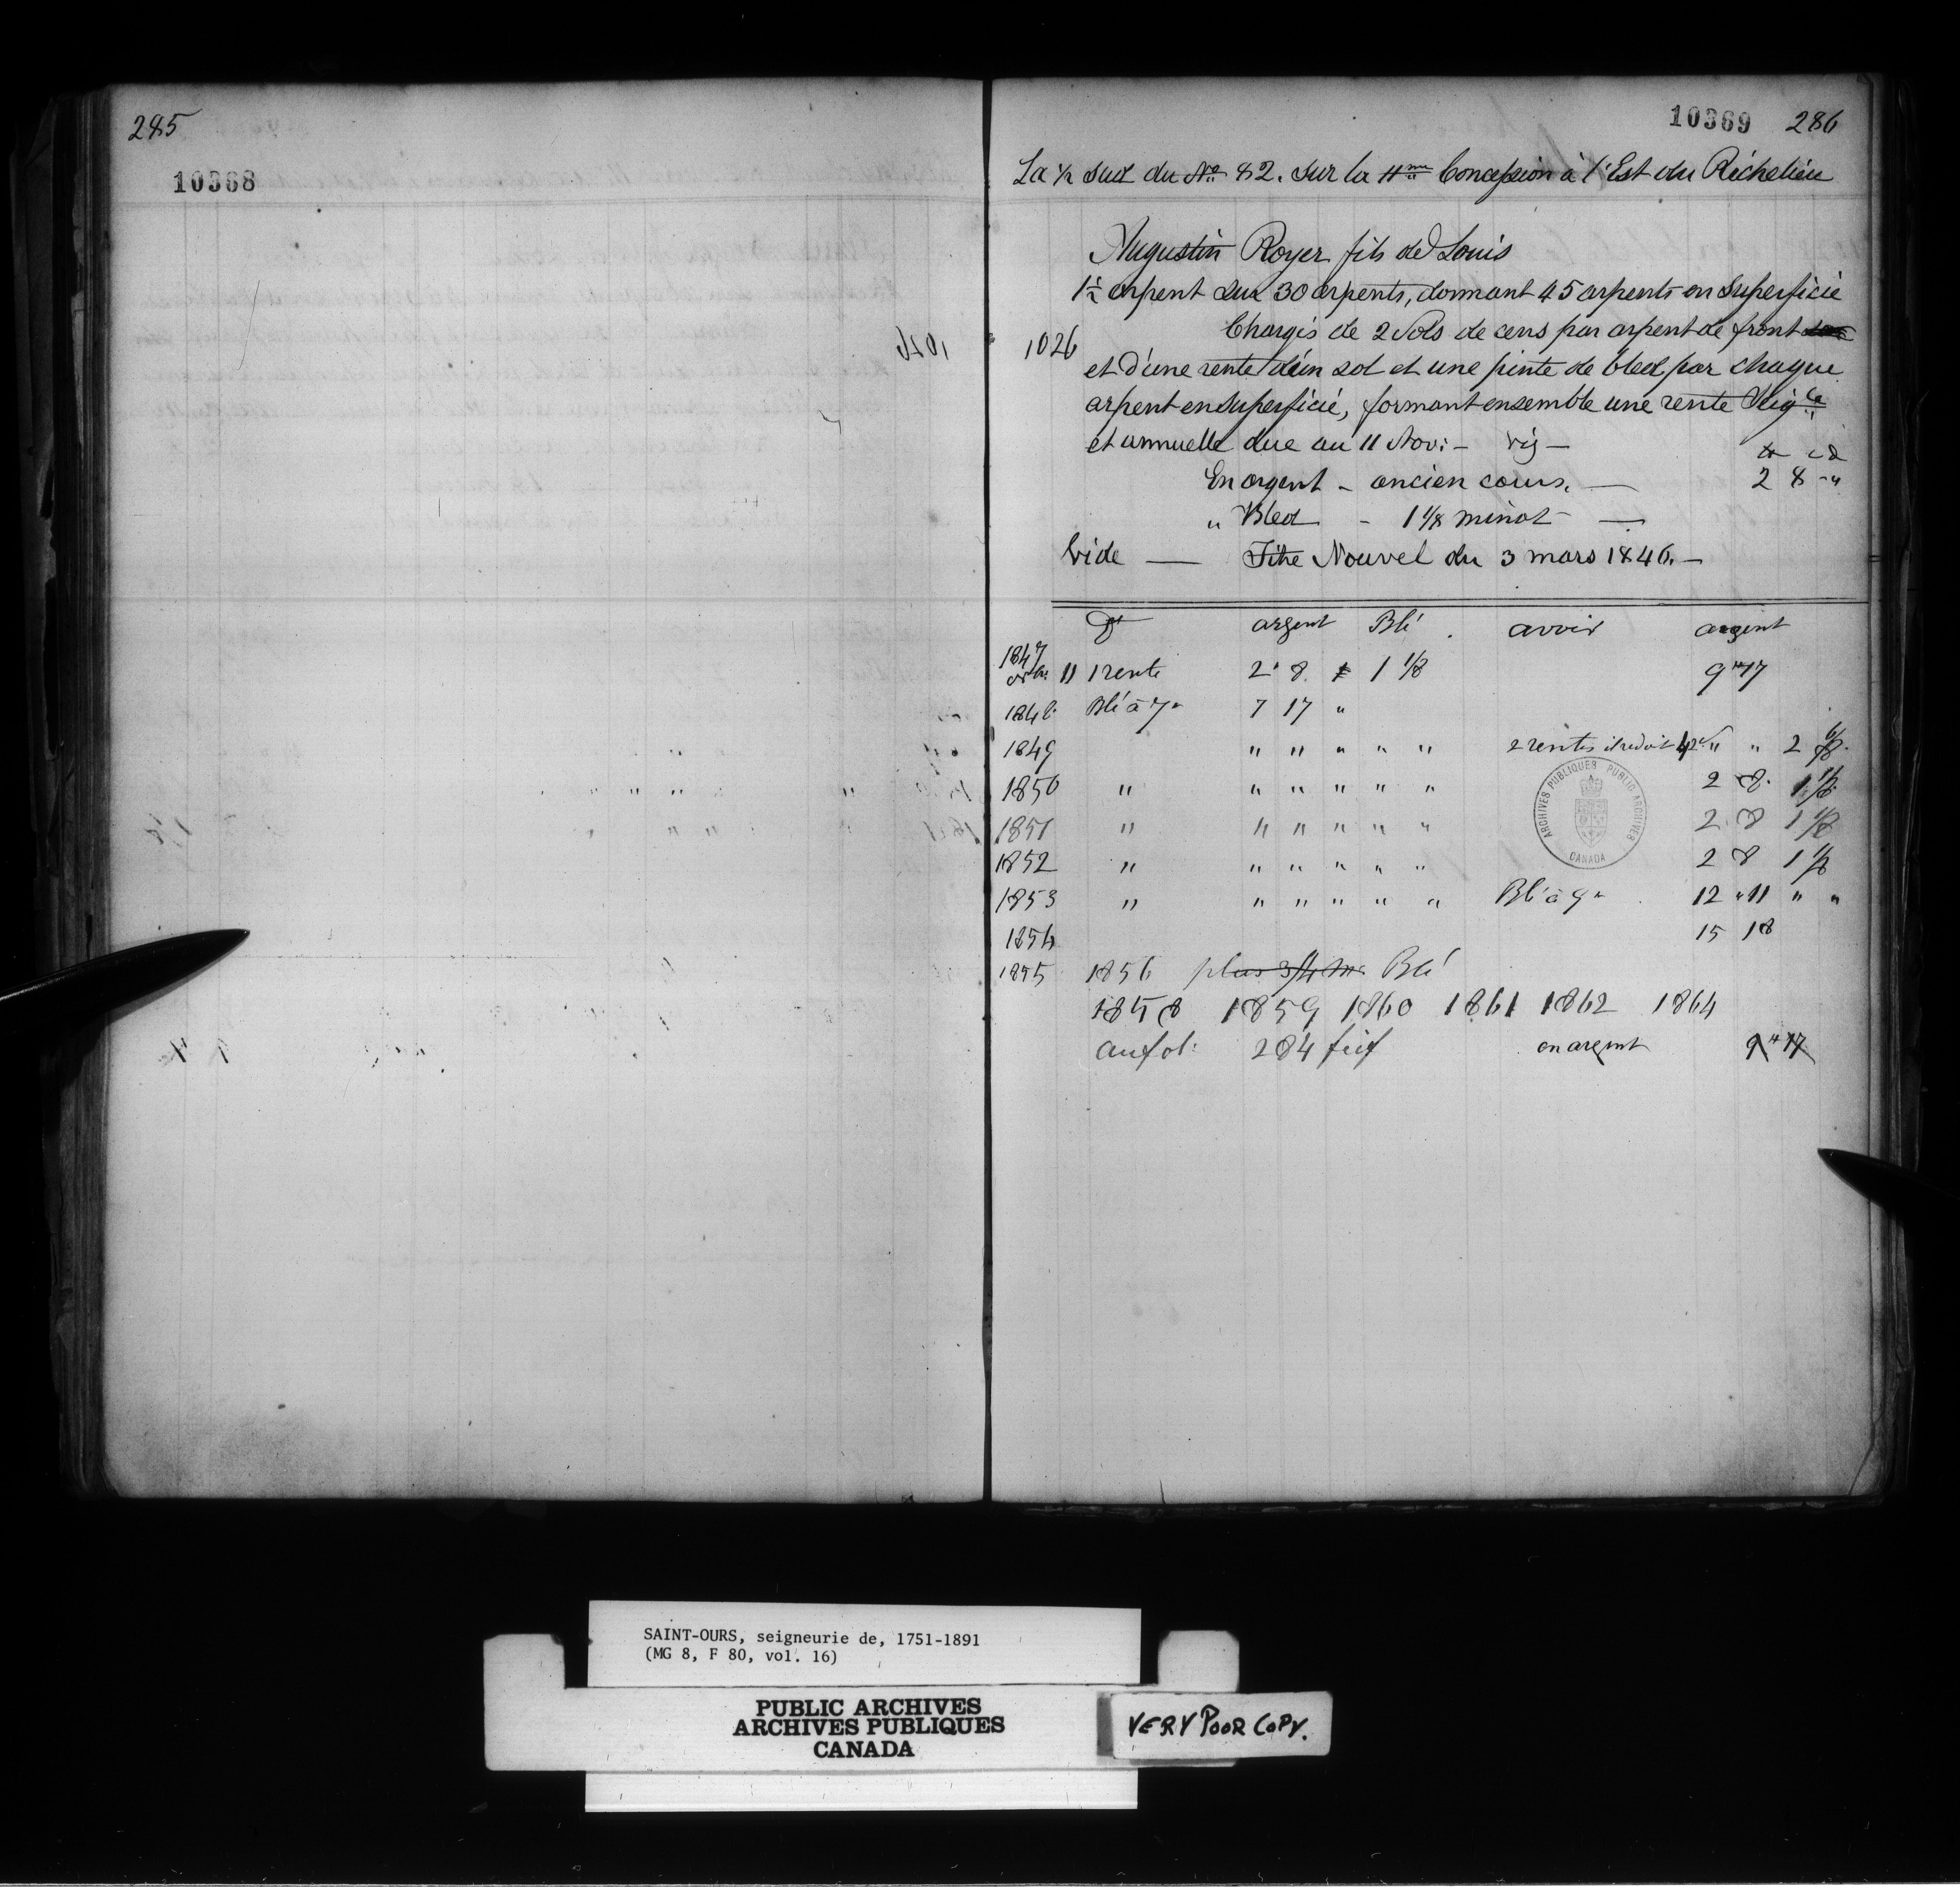 285
10368
10369 286
La ½ Sud du No 82. Sur la 11me Concession à l'Est du Richelieu
Augustin Royer fils de Louis
1½ arpent sur 30 arpents, donnant 45 arpents en Superficie
1026 Chargés de 2 Sols de cens par arpent de front
et d'une rente d'un sol et une pinte de bled par chaque
arpent en Superficié, formant ensemble une rente Seigle
et annuelle due au 11 Nov: — viz —
En argent - ancien cours. — 2 8 "
" Bled - 1 1/8 minot —
Vide — Titre Nouvel du 3 mars 1846. —
Dt argent Blé avoir argent
1847 11 1 rente 2 " 8 1 1/8 9 " 17
1848 Blé à 7 " 7 17 "
1849 " " " " " 2 rentes " " 2
1850 " " " " " " 2 8 1 1/8
1851 " " " " " " 2 8 1 1/8
1852 " " " " " " 2 8 1 1/8
1853 " " " " " " Blé à 9 " 12 " 11 " "
1854 15 18
1855 1856 plus 3/4 m. Blé
1858 1859 1860 1861 1862 1864
au fol: 284 en argent 9 " 17
ARCHIVES PUBLIQUES PUBLIC ARCHIVES
CANADA
SAINT-OURS, seigneurie de, 1751-1891
(MG 8, F 80, vol. 16)
PUBLIC ARCHIVES
ARCHIVES PUBLIQUES
CANADA
VERY POOR COPY.